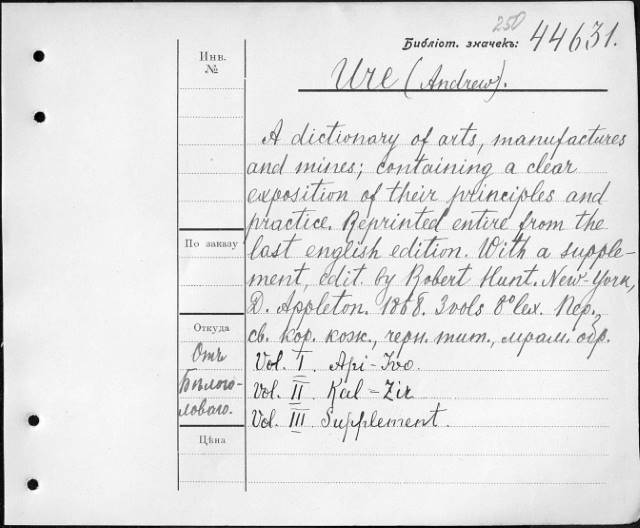 250
Библіот. значекъ: 44631.
Инв.
№
Ure (Andrew).
A dictionary of arts, manufactures
and mines; containing a clear
exposition of their principles and
practice. Reprinted entire from the
По заказу
last english edition. With a supple-
ment, edit. by Robert Hunt. New-York,
D. Appleton. 1868. 3 vols 8° lex. Пер.
Откуда
св. кор. кож., черн. тит., мрам. обр.
Отъ
Бѣлого-
ловаго.
Vol. I. Api-Ivo.
Vol. II. Kal-Zir
Vol. III. Supplement.
Цѣна